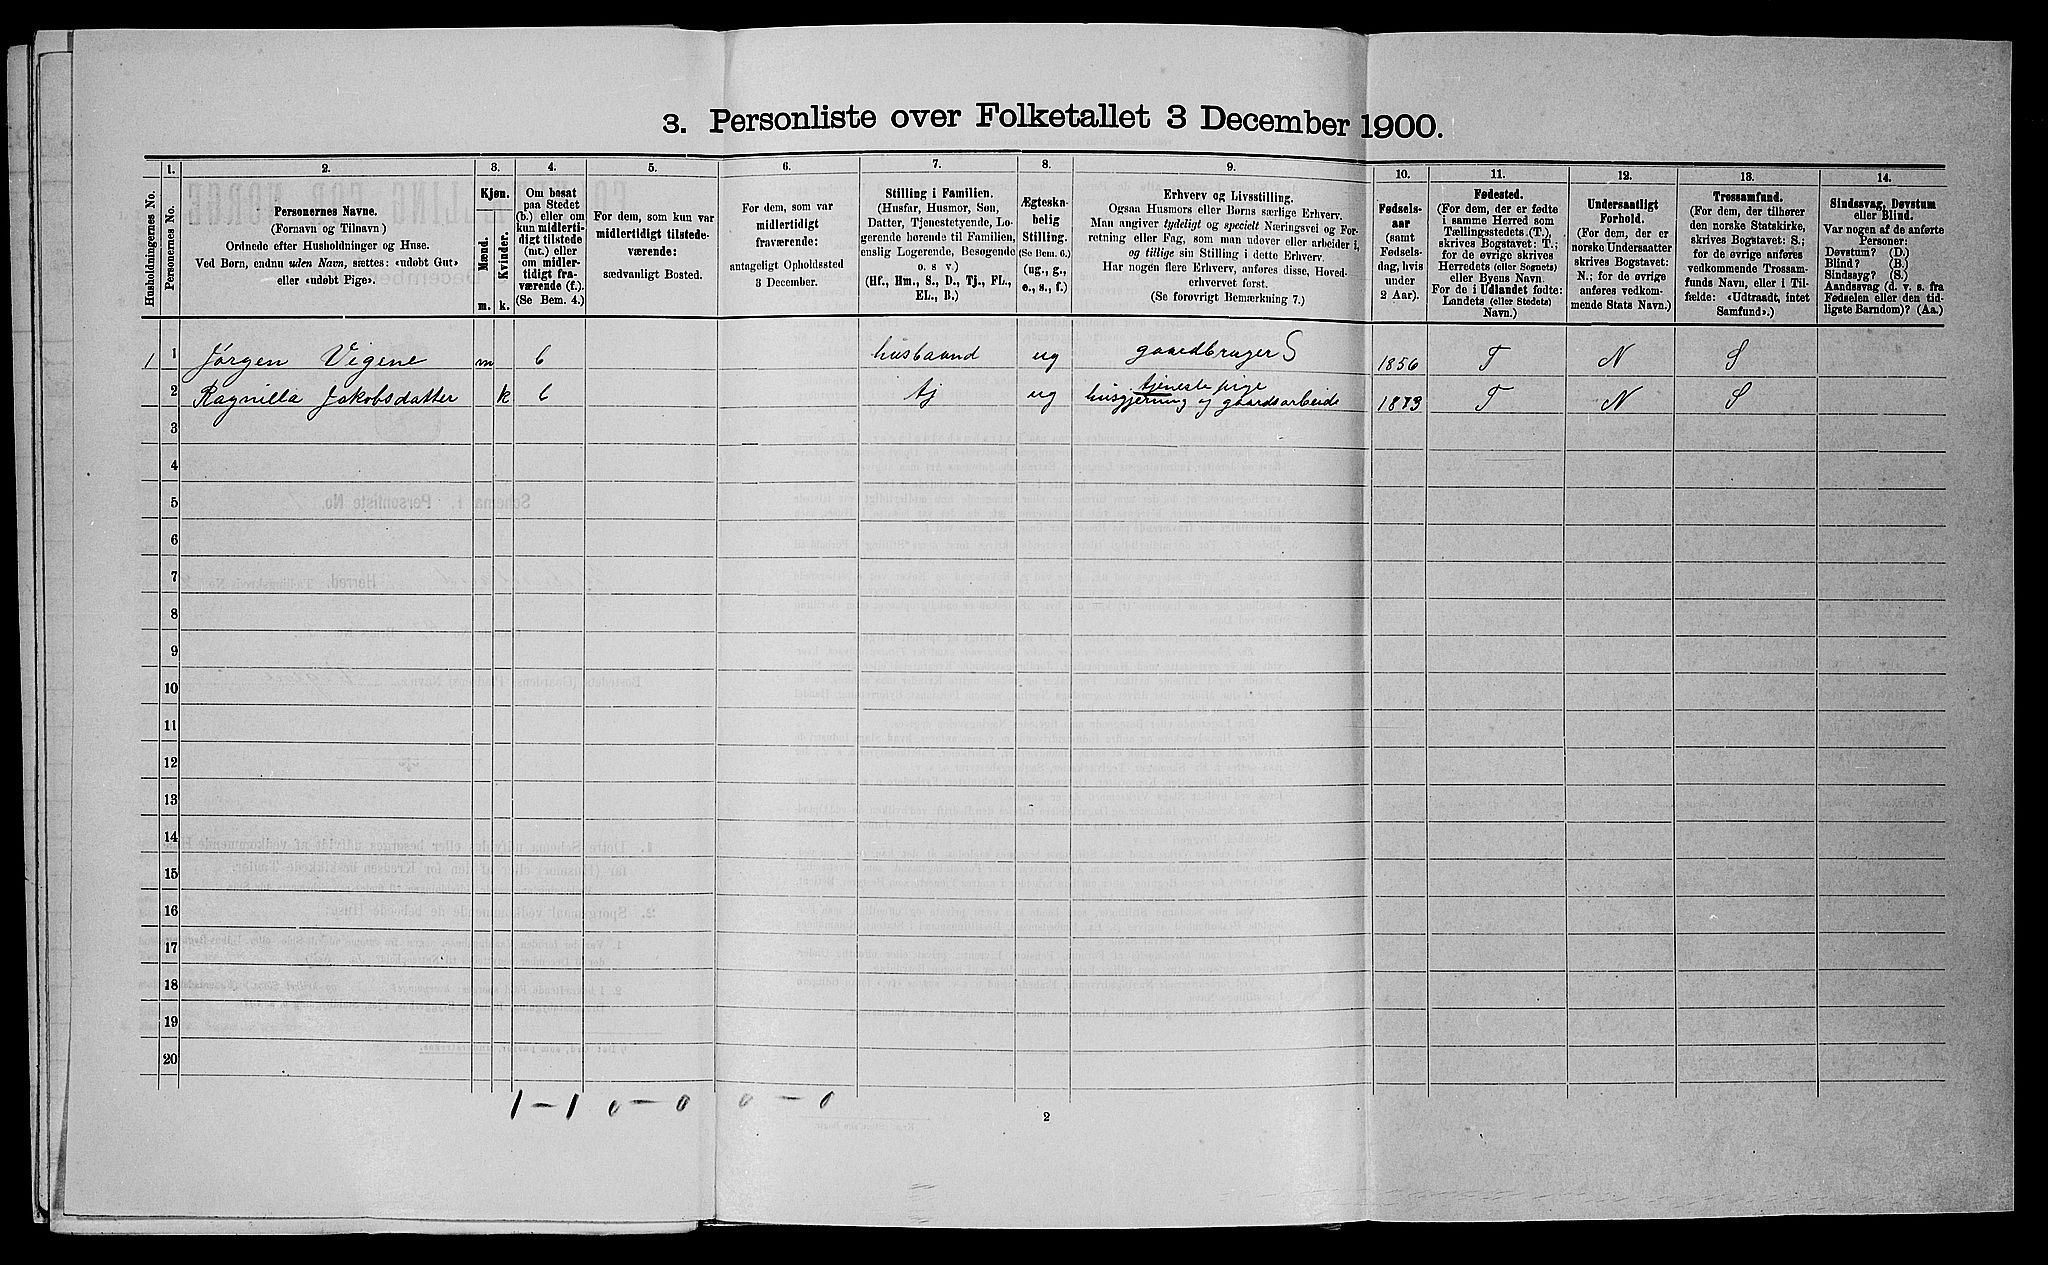 3. Personliste over Folketallet 3 December 1900.
1. 2. 3. 4. 5. 6. 7. 8. 9. 10. 11. 12. 13. 14.
Husholdningernes No.
Personernes No.
Personernes Navne.
(Fornavn og Tilnavn)
Ordnede efter Husholdninger og Huse.
Ved Børn, endnu uden Navn, sættes: «udøbt Gut»
eller «udøbt Pige».
Kjøn.
Mænd.
Kvinder.
m. k.
Om bosat
paa Stedet
(b.) eller om
kun midlerti-
digt tilstede
(mt.) eller
om midler-
tidigt fra-
værende (f.).
(Se Bem. 4.)
For dem, som kun var
midlertidigt tilstede-
værende:
sædvanligt Bosted.
For dem, som var
midlertidigt
fraværende:
antageligt Opholdssted
3 December.
Stilling i Familien.
(Husfar, Husmor, Søn,
Datter, Tjenestetyende, Lo-
gerende hørende til Familien,
enslig Logerende, Besøgende
o. s v.)
(Hf., Hm., S., D., Tj., FL.,
EL., B.)
Ægteska-
belig
Stilling.
(Se Bem. 6.)
(ug., g.,
e., s., f.)
Erhverv og Livsstilling.
Ogsaa Husmors eller Børns særlige Erhverv.
Man angiver tydeligt og specielt Næringsvei og For-
retning eller Fag, som man udøver eller arbeider i,
og tillige sin Stilling i dette Erhverv.
Har nogen flere Erhverv, anføres disse, Hoved-
erhvervet først.
(Se forøvrigt Bemærkning 7.)
Fødsels-
aar
(samt
Fødsels-
dag, hvis
under
2 Aar).
Fødested.
(For dem, der er fødte
i samme Herred som
Tællingsstedets (T.),
skrives Bogstavet: T.;
for de øvrige skrives
Herredets (eller Sognets)
eller Byens Navn.
For de i Udlandet fødte:
Landets (eller Stedets)
Navn.)
Undersaatligt
Forhold.
(For dem, der er
norske Undersaatter
skrives Bogstavet:
N.; for de øvrige
anføres vedkom-
mende Stats Navn.)
Trossamfund.
(For dem, der tilhører
den norske Statskirke,
skrives Bogstavet: S.;
for de øvrige anføres
vedkommende Trossam-
funds Navn, eller i Til-
fælde: «Udtraadt, intet
Samfund».)
Sindssvag, Døvstum
eller Blind.
Var nogen af de anførte
Personer:
Døvstum? (D.)
Blind? (B.)
Sindssyg? (S.)
Aandssvag (d. v. s. fra
Fødselen eller den tid-
ligste Barndom)? (Aa.)
1 1 Jørgen Vigene m b husbaand ug gaardbruger S 1856 T N S
tjenestepige
2 Ragnilla Jakobsdatter k b tj ug husgjerning og gaardsarbeide 1873 T N S
3
4
5
6
7
8
9
10
11
12
13
14
15
16
17
18
19
20
1 - 1 0 - 0 0 - 0
2